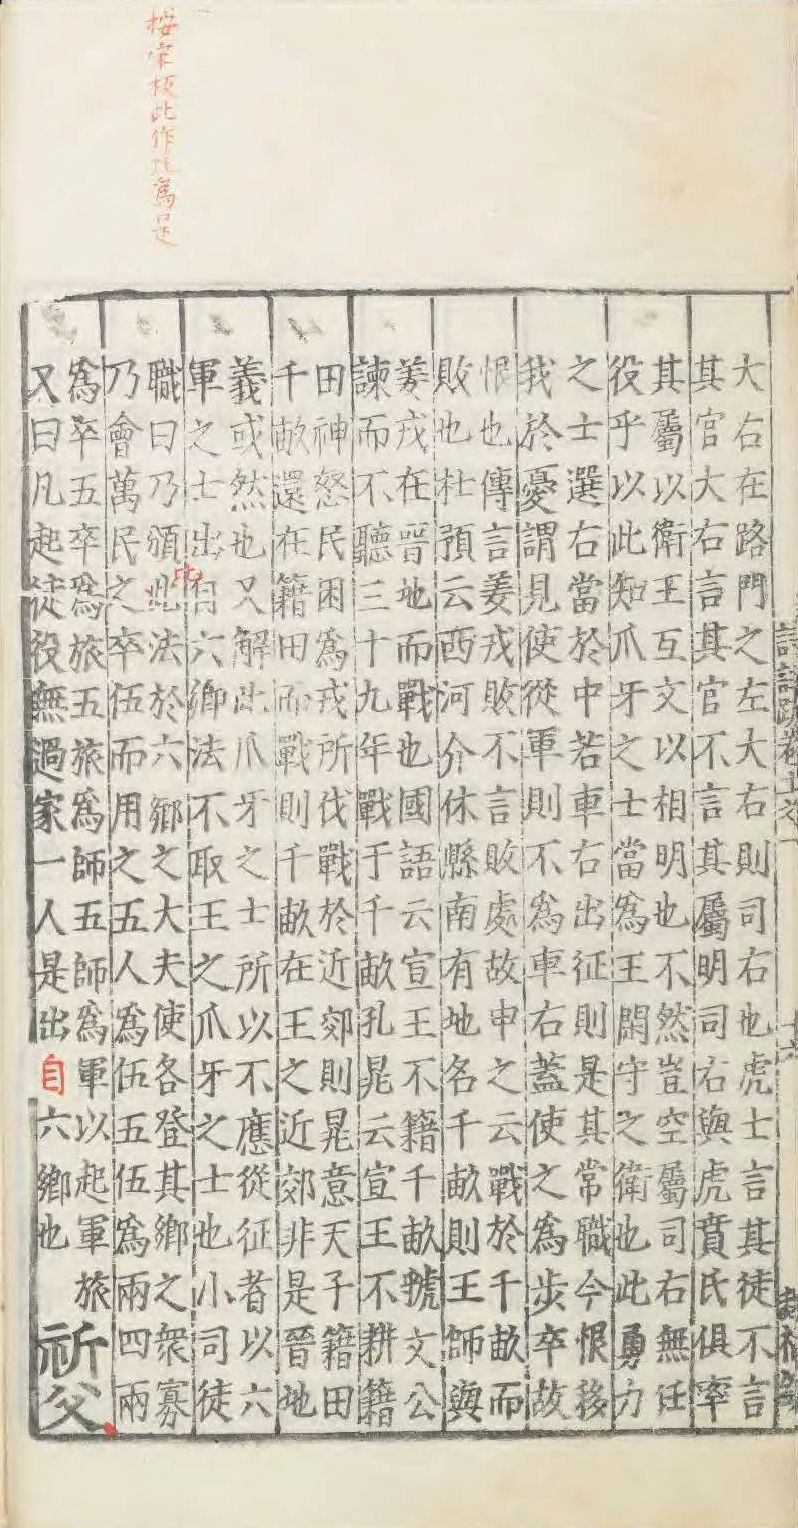 按宋板此作比爲是
大右在路門之左大右則司右也虎士言其徒不言
其官大右言其官不言其屬明司右與虎賁氏俱率
其屬以衛王互文以相明也不然豈空屬司右無任
役乎以此知爪牙之士當爲王閑守之衛也此勇力
之士選右當於中若車右出征則是其常職今恨移
我於憂謂見使從軍則不爲車右蓋使之爲步卒故
恨也傳言姜戎敗不言敗處故申之云戰於千畝而
敗也杜預云西河介休縣南有地名千畝則王師與
姜戎在晉地而戰也國語云宣王不籍千畝虢文公
諫而不聽三十九年戰于千畝孔晁云宣王不耕籍
田神怒民困爲戎所伐戰於近郊則晁意天子籍田
千畝還在籍田而戰則千畝在王之近郊非是晉地
義或然也又解此爪牙之士所以不應從征者以六
軍之士出自六鄉法不取王之爪牙之士也小司徒
職曰乃頒比法於六鄉之大夫使各登其鄉之衆寡
乃會萬民之卒伍而用之五人爲伍五伍爲兩四兩
爲卒五卒爲旅五旅爲師五師爲軍以起軍旅
又曰凡起徒役無過家一人是出自六鄉也
祈父